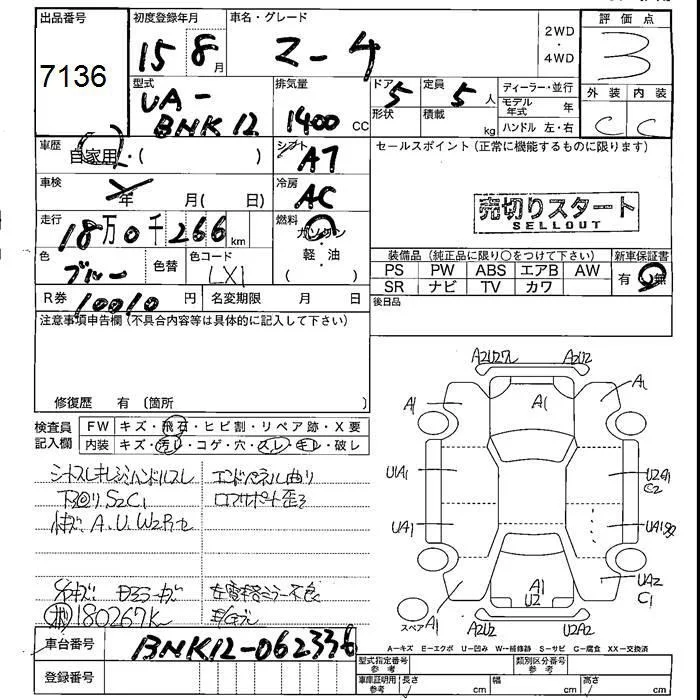 出品番号
7136
初度登録年月
15 8月
車名・グレード
マーチ
2WD
・
4WD
評価点
3
外装 内装
C C
型式
UA-
BNK12
排気量
1400 CC
ドア
5
形状
定員
5 人
積載
kg
ディーラー・並行
モデル
年式 年
ハンドル 左・右
車歴
自家用・( )
シフト
AT
車検
年 月( 日)
冷房
AC
走行
18万0千266km
燃料
ガソリン
軽・油
( )
色
ブルー
色替
色コード
LX1
R券 10010 円
名変期限 月 日
セールスポイント(正常に機能するものに限ります)
売切りスタート
SELLOUT
装備品(純正品に限り○をつけて下さい)
新車保証書
PS PW ABS エアB AW
SR ナビ TV カワ
有 無
後日品
注意事項申告欄(不具合内容等は具体的に記入して下さい)
修復歴 有 (箇所
検査員
記入欄
FW キズ・飛石・ヒビ割・リペア跡・X要
内装 キズ・汚レ・コゲ・穴・スレ・キレ・破レ
シートスレキレシミハンドルスレ
エンドパネル曲り
下回りS2C1
A.U.W2P
180267K
左電格ミラー不良
A2U2 A2U2
A1 A1 A1
U1A1
UA1
UA2
C1
A1
U2
A1
A2U2 U2A2
スペア
A-キズ E-エクボ U-凹み W-補修跡 S-サビ C-腐食 XX-交換済
車台番号
BNK12-062336
登録番号
型式指定番号
参考
類別区分番号
参考
車庫証明用
参考
長さ cm
幅 cm
高さ cm